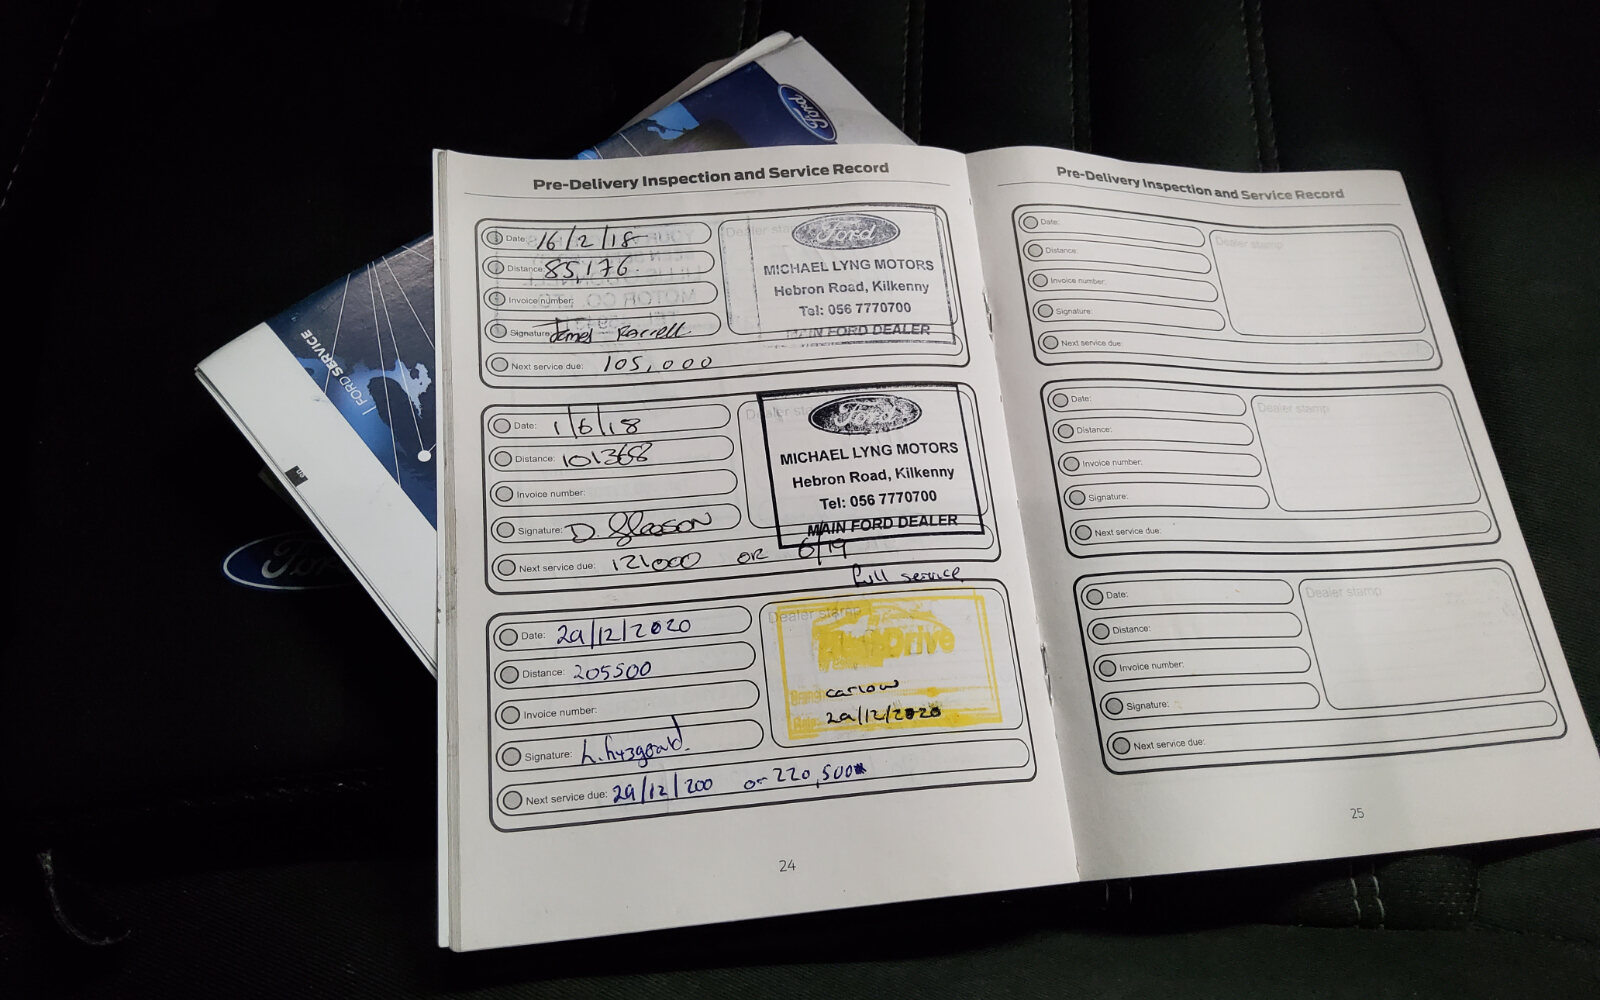 Ford
FORDSERVICE
en
Ford
Pre-Delivery Inspection and Service Record
Date: 16/2/18
Distance: 85,176.
Invoice number:
Signature: James Farrell
Next service due: 105,000
Dealer stamp
Ford
MICHAEL LYNG MOTORS
Hebron Road, Kilkenny
Tel: 056 7770700
MAIN FORD DEALER
Date: 1/6/18
Distance: 101368
Invoice number:
Signature: D. Gleeson
Next service due: 121000 OR 6/19
Dealer stamp
Ford
MICHAEL LYNG MOTORS
Hebron Road, Kilkenny
Tel: 056 7770700
MAIN FORD DEALER
full service
Date: 29/12/2020
Distance: 205500
Invoice number:
Signature:
Next service due: 29/12/200 or 220,500
Dealer stamp
Drive
Branch carlow
Date: 29/12/2020
24
Pre-Delivery Inspection and Service Record
Date:
Distance:
Invoice number:
Signature:
Next service due:
Dealer stamp
Date:
Distance:
Invoice number:
Signature:
Next service due:
Dealer stamp
Date:
Distance:
Invoice number:
Signature:
Next service due:
Dealer stamp
25